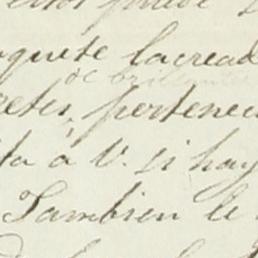 quete lacread
oc brillantes
etes, pertenec
ta a V. si hay
Tambien le